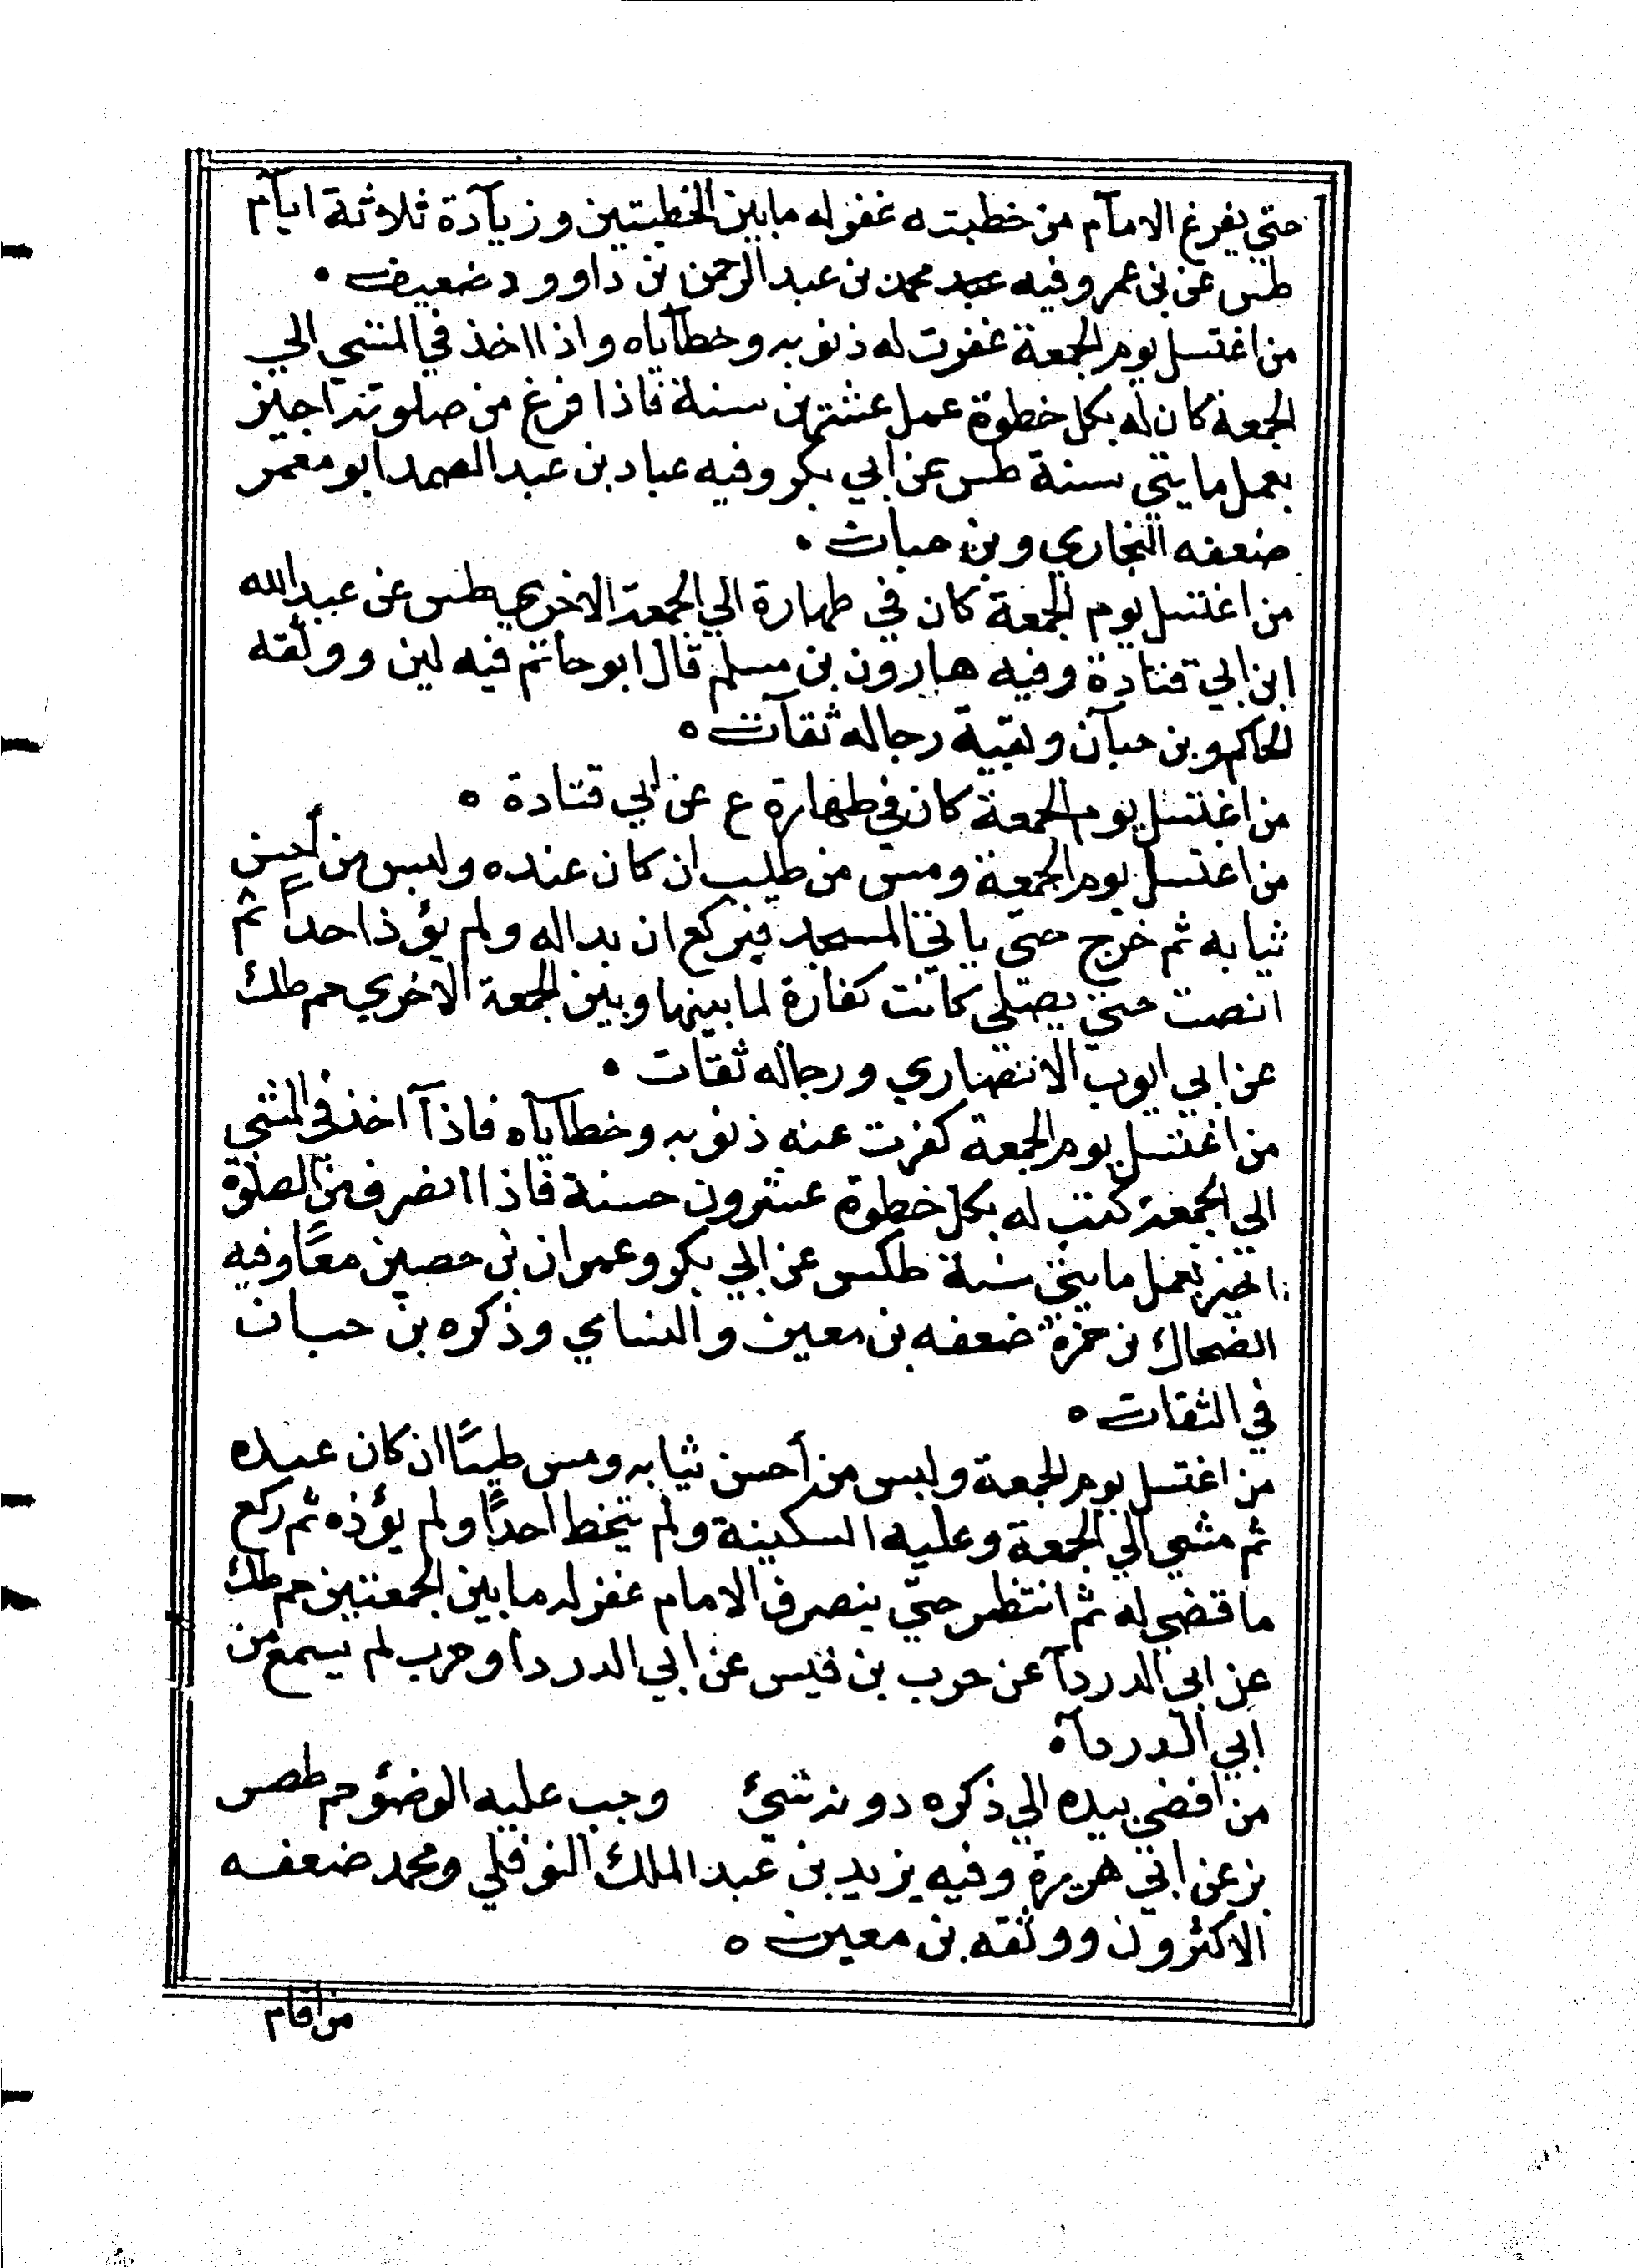 حتي يفرغ الامآم من خطبته غفر له ما بين الخطبتين وزيآدة ثلاثة ايآم
طس عن بن عمر وفيه عبد محمد بن عبد الرحمن بن داوود ضعيف ٠
من اغتسل يوم الجمعة غفرت له ذنوبه وخطآياه واذا اخذ في المشي الي
الجمعة كان له بكل خطوة عمل عشرين سنة فاذا فرغ من صلوته اجيز
بعمل مايتي سنة طس عن ابي بكر وفيه عباد بن عبد الصمد ابو معمر
ضعفه البخاري وبن حبان ٠
من اغتسل يوم الجمعة كان في طهارة الي الجمعة الاخري طس عن عبد الله
ابن ابي قتادة وفيه هارون بن مسلم قال ابو حاتم فيه لين ووثقه
الحاكم وبن حبآن وبقية رجاله ثقآت ه
من اغتسل يوم الجمعة كان في طهارة ع عن ابي قتادة ه
من اغتسل يوم الجمعة ومس من طيب ان كان عنده ولبس من أحسن
ثيابه ثم خرج حتي ياتي المسجد فيركع ان بداله ولم يؤذ احداً ثم
انصت حتي يصلي كانت كفارة لما بينها وبين الجمعة الاخري حم طك
عن ابي ايوب الانصاري ورجاله ثقات ٠
من اغتسل يوم الجمعة كفرت عنه ذنوبه وخطآياه فاذآ اخذ في المشي
الي الجمعة كتب له بكل خطوة عشرون حسنة فاذا انصرف من الصلوة
اجيز بعمل مايتي سنة طكس عن ابي بكر وعمران بن حصين معًا وفيه
الضحاك بن حمزة ضعفه بن معين والنساي وذكره بن حبان
في الثقات ه
من اغتسل يوم الجمعة ولبس من أحسن ثيابه ومس طيبًا ان كان عنده
ثم مشي الي الجمعة وعليه السكينة ولم يتخط احدًا ولم يؤذه ثم ركع
ما قضي له ثم انتظر حتي ينصرف الامام غفر له ما بين الجمعتين حم طك
عن ابي الدردآ عن حرب بن قيس عن ابي الدردا وحرب لم يسمع من
ابي الدردآ ه
من افضي بيده الي ذكره دونه شئ وجب عليه الوضؤ حم طصس
بز عن ابي هريرة وفيه يزيد بن عبد الملك النوفلي ومحمد ضعفه
الاكثرون ووثقه بن معين ه
من اقام